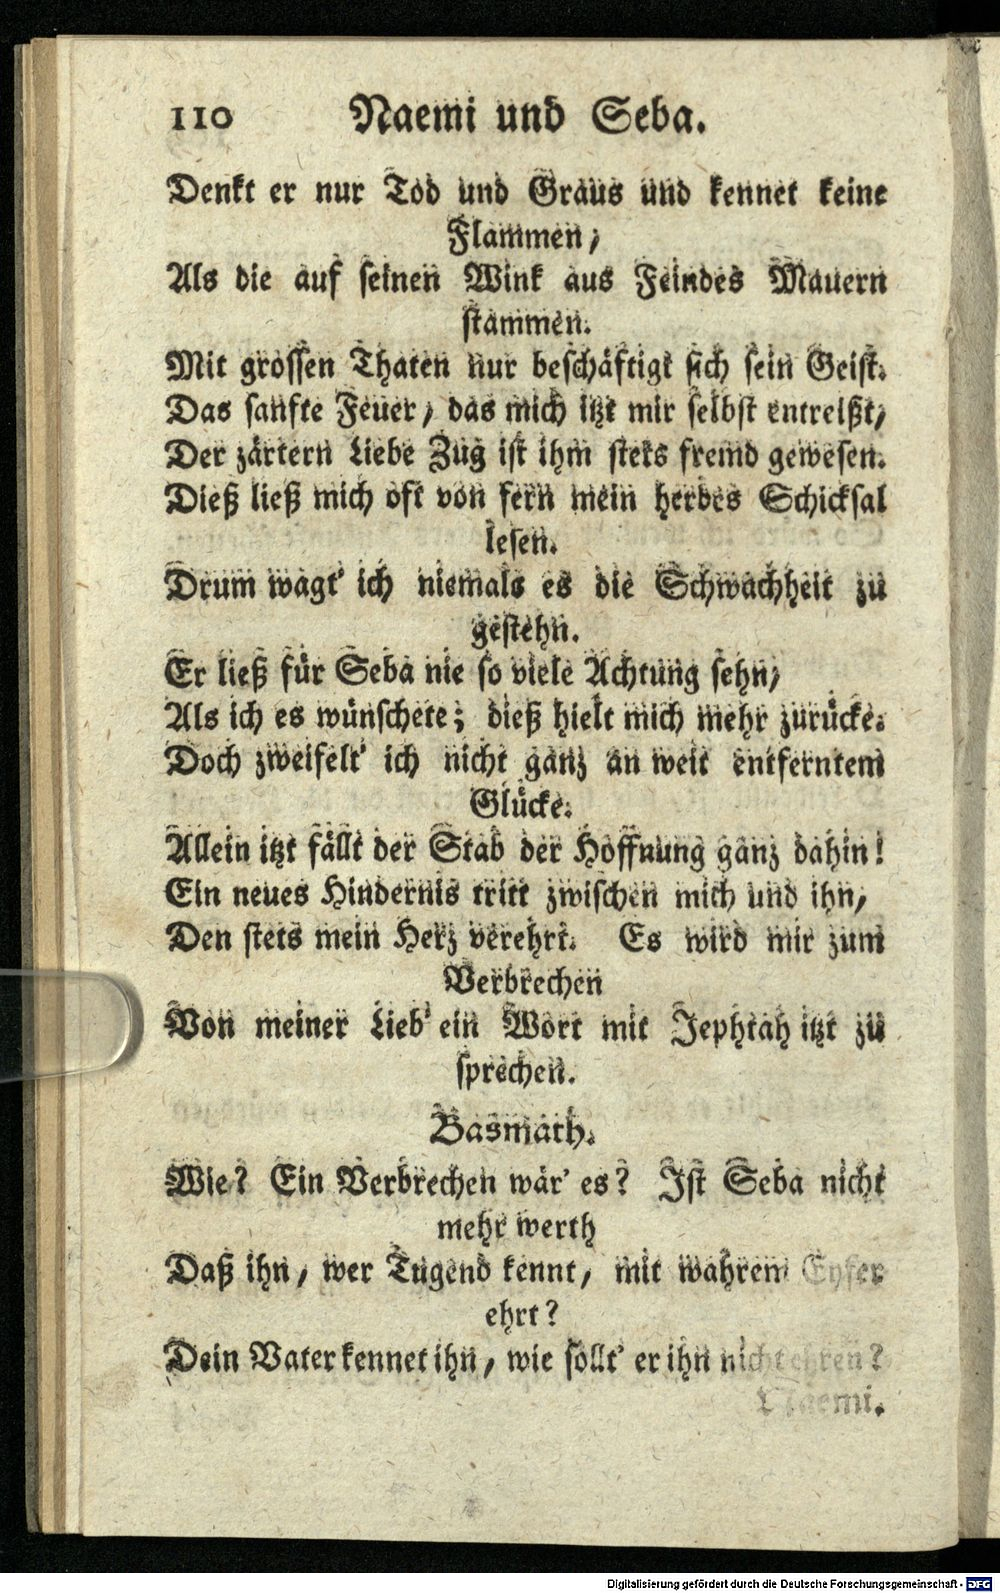 110 Naemi und Seba.
Denkt er nur Tod und Graus und kennet keine
Flammen,
Als die auf seinen Wink aus Feindes Mauern
stammen.
Mit grossen Thaten nur beschäftigt sich sein Geist.
Das sanfte Feuer, das mich itzt mir selbst entreißt,
Der zärtern Liebe Zug ist ihm stets fremd gewesen.
Dieß ließ mich oft von fern mein herbes Schicksal
lesen.
Drum wagt' ich niemals es die Schwachheit zu
gestehn.
Er ließ für Seba nie so viele Achtung sehn,
Als ich es wünschete; dieß hielt mich mehr zurücke.
Doch zweifelt' ich nicht ganz an weit entferntem
Glücke.
Allein itzt fällt der Stab der Hoffnung ganz dahin!
Ein neues Hindernis tritt zwischen mich und ihn,
Den stets mein Herz verehrt. Es wird mir zum
Verbrechen
Von meiner Lieb' ein Wort mit Jephtah itzt zu
sprechen.
Basmath.
Wie? Ein Verbrechen wär' es? Ist Seba nicht
mehr werth
Daß ihn, wer Tugend kennt, mit wahrem Eyfer
ehrt?
Dein Vater kennet ihn, wie sollt' er ihn nicht ehren?
Naemi.
Digitalisierung gefördert durch die Deutsche Forschungsgemeinschaft - DFG